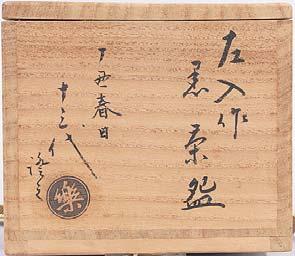 左入作
黒茶盌
丁丑春日
十三代
樂